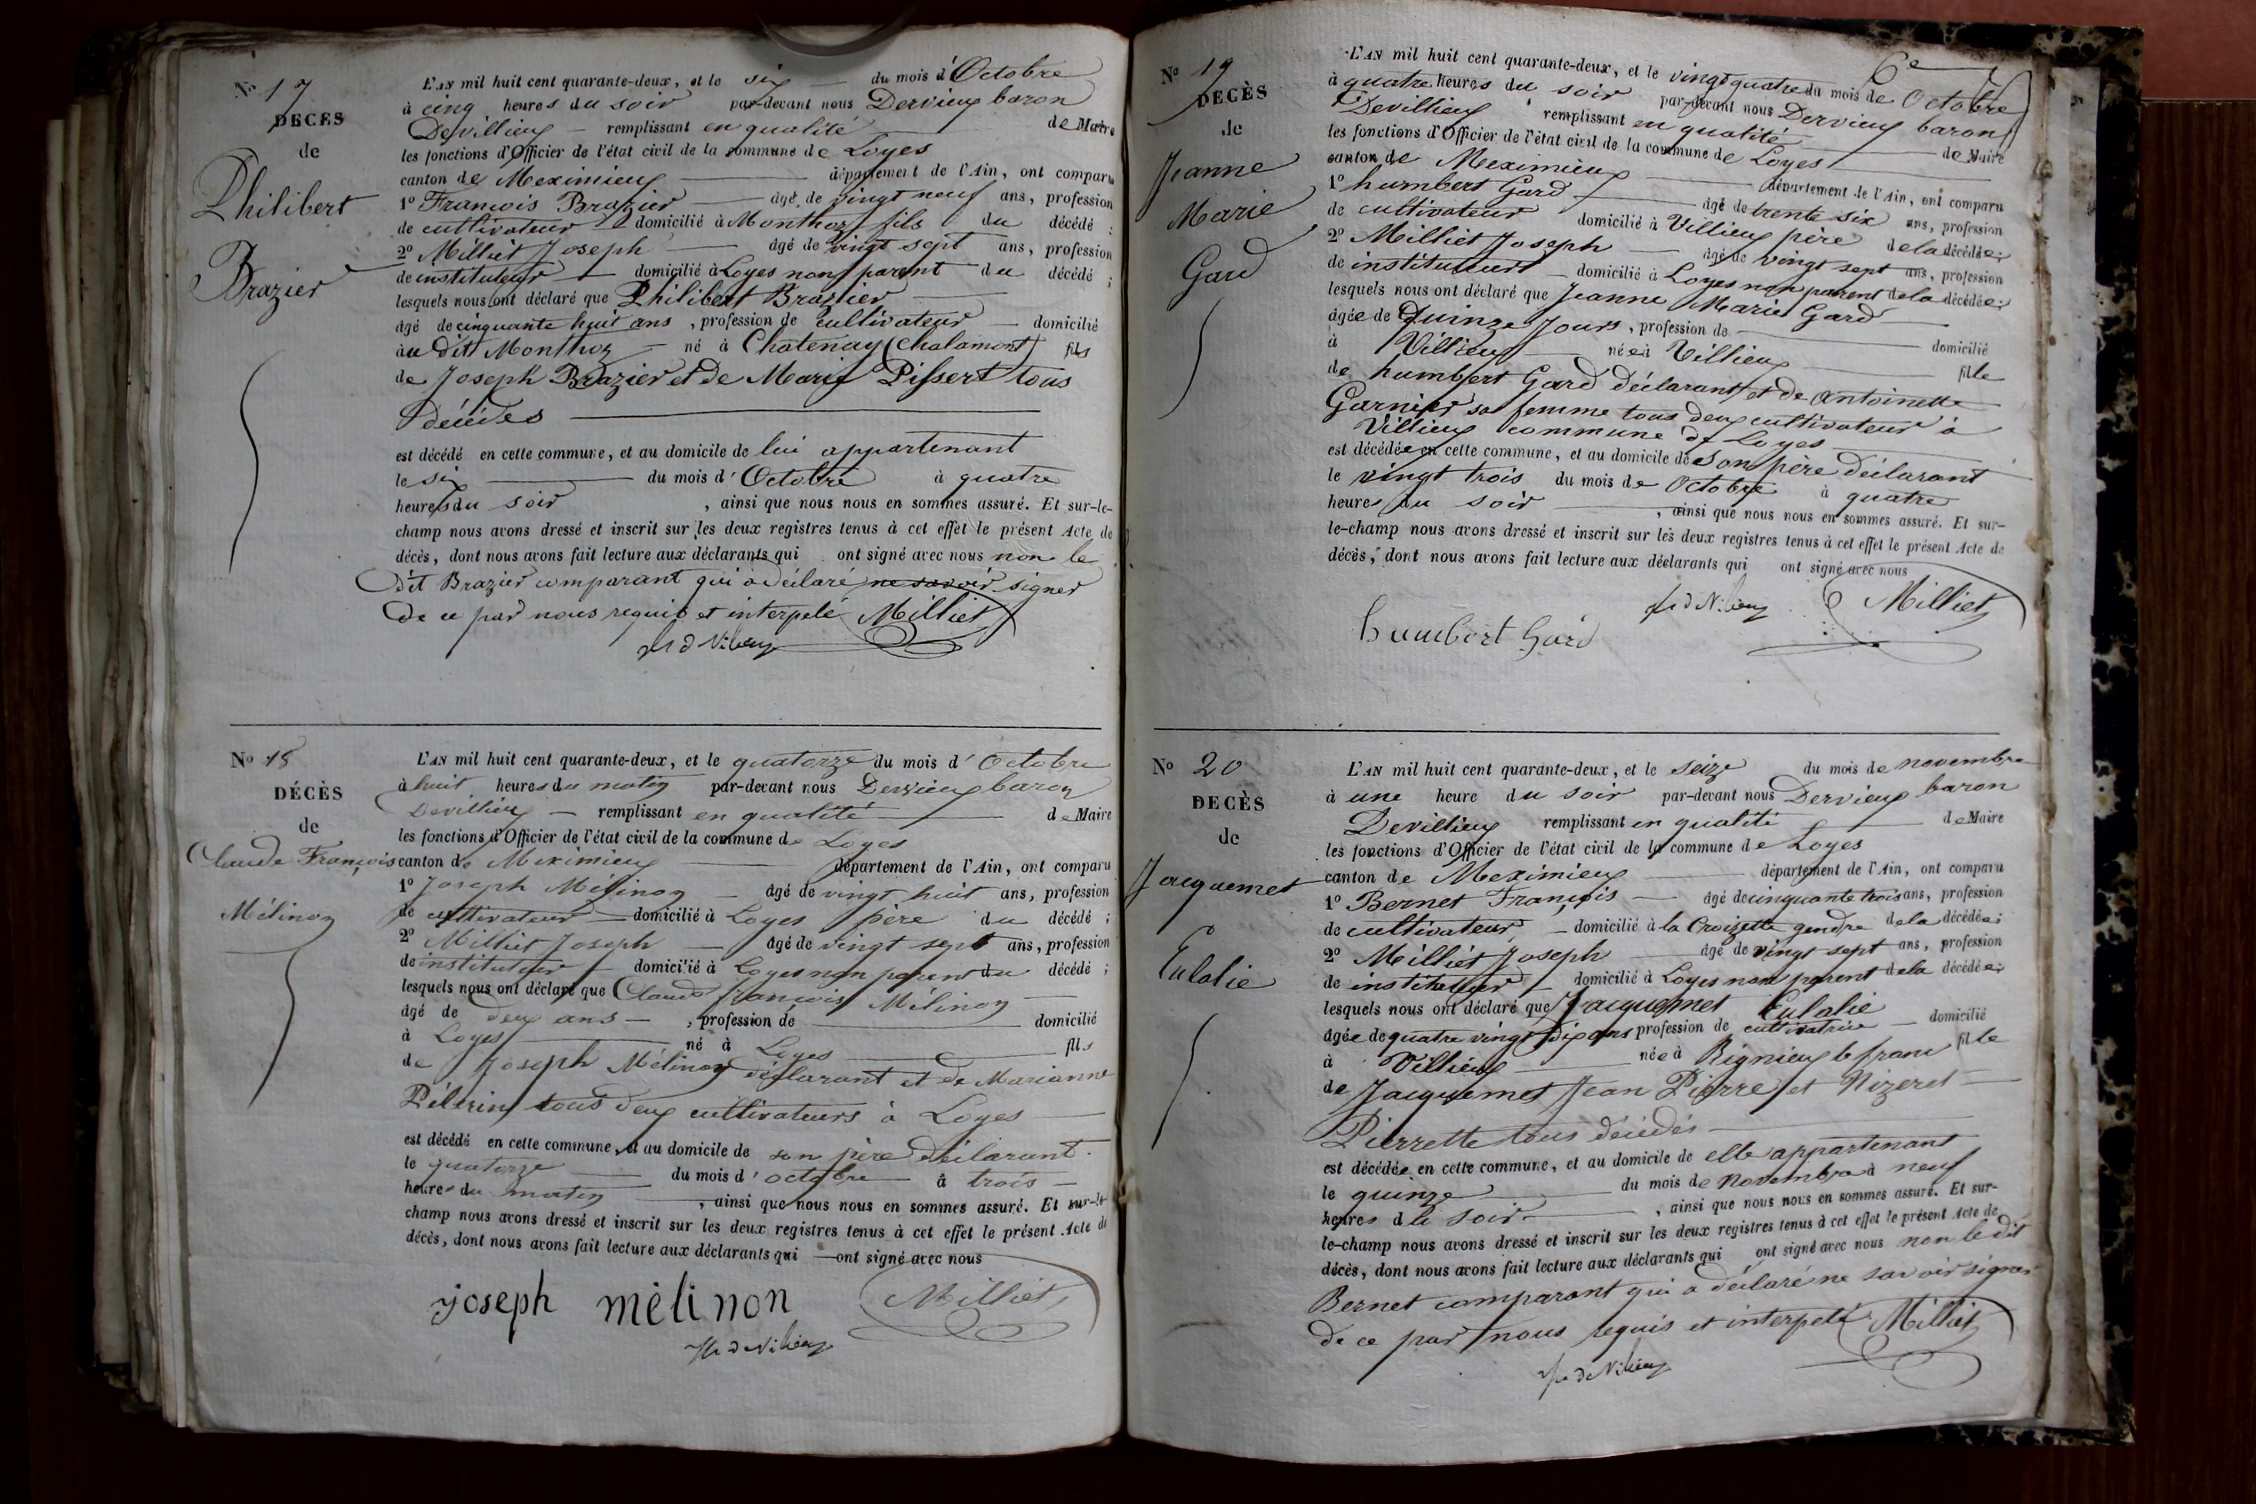 No 17
DECES
de
Philibert
Brazier
L'AN mil huit cent quarante-deux, et le six du mois d'Octobre
à cinq heures du soir par-devant nous Dervieux baron
Devillieux remplissant en qualité de Maire
les fonctions d'Officier de l'état civil de la commune de Loyes
canton de Meximieux département de l'Ain, ont comparu
1o François Brazier âgé de vingt neuf ans, profession
de cultivateur domicilié à Monthoz fils du décédé ;
2o Milliet Joseph âgé de vingt sept ans, profession
de instituteur domicilié à Loyes non parent du décédé ;
lesquels nous ont déclaré que Philibert Brazier
âgé de cinquante huit ans, profession de cultivateur domicilié
au dit Monthoz né à Chatenay (Chalamont) fils
de Joseph Brazier et de Marie Pissert tous
décédés
est décédé en cette commune, et au domicile de lui appartenant
le six du mois d'Octobre à quatre
heures du soir, ainsi que nous nous en sommes assuré. Et sur-le-
champ nous avons dressé et inscrit sur les deux registres tenus à cet effet le présent Acte de
décès, dont nous avons fait lecture aux déclarants qui ont signé avec nous non le
dit Brazier comparant qui a déclaré ne savoir signer
de ce par nous requis et interpelé Milliet
No 18
DÉCÈS
de
Claude François
Mélinon
L'AN mil huit cent quarante-deux, et le quatorze du mois d'Octobre
à huit heures du matin par-devant nous Dervieux baron
Devillieux remplissant en qualité de Maire
les fonctions d'Officier de l'état civil de la commune de Loyes
canton de Meximieux département de l'Ain, ont comparu
1o Joseph Mélinon âgé de vingt huit ans, profession
de cultivateur domicilié à Loyes père du décédé ;
2o Milliet Joseph âgé de vingt sept ans, profession
de instituteur domicilié à Loyes non parent du décédé ;
lesquels nous ont déclaré que Claude François Mélinon
âgé de deux ans, profession de domicilié
à Loyes né à Loyes fils
de Joseph Mélinon déclarant et de Marianne
Pélerin tous deux cultivateurs à Loyes
est décédé en cette commune, et au domicile de son père déclarant
le quatorze du mois d'octobre à trois
heures du matin, ainsi que nous nous en sommes assuré. Et sur-le-
champ nous avons dressé et inscrit sur les deux registres tenus à cet effet le présent Acte de
décès, dont nous avons fait lecture aux déclarants qui ont signé avec nous
joseph mèlinon Milliet
No 19
DECÈS
de
Jeanne
Marie
Gard
6e
L'AN mil huit cent quarante-deux, et le vingt quatre du mois de Octobre
à quatre heures du soir par-devant nous Dervieux baron
Devillieux remplissant en qualité de Maire
les fonctions d'Officier de l'état civil de la commune de Loyes
canton de Meximieux département de l'Ain, ont comparu
1o humbert Gard âgé de trente six ans, profession
de cultivateur domicilié à Villieux père de la décédée ;
2o Milliet Joseph âgé de vingt sept ans, profession
de instituteur domicilié à Loyes non parent de la décédée ;
lesquels nous ont déclaré que Jeanne Marie Gard
âgée de quinze Jours, profession de domicilié
à Villieux née à Villieux fille
de humbert Gard déclarant et de Antoinette
Garnier sa femme tous deux cultivateur à
Villieux commune de Loyes
est décédée en cette commune, et au domicile de son père déclarant
le vingt trois du mois de Octobre à quatre
heures du soir, ainsi que nous nous en sommes assuré. Et sur-
le-champ nous avons dressé et inscrit sur les deux registres tenus à cet effet le présent Acte de
décès, dont nous avons fait lecture aux déclarants qui ont signé avec nous
Milliet
humbert Gard
No 20
DECÈS
de
Jacquemet
Eulalie
L'AN mil huit cent quarante-deux, et le seize du mois de novembre
à une heure du soir par-devant nous Dervieux baron
Devillieux remplissant en qualité de Maire
les fonctions d'Officier de l'état civil de la commune de Loyes
canton de Meximieux département de l'Ain, ont comparu
1o Bernet François âgé de cinquante trois ans, profession
de cultivateur domicilié à la Croizette gendre de la décédée ;
2o Milliet Joseph âgé de vingt sept ans, profession
de instituteur domicilié à Loyes non parent de la décédée ;
lesquels nous ont déclaré que Jacquemet Eulalie
âgée de quatre vingt dix ans profession de cultivatrice domicilié
à Villieux née à Rignieux le franc fille
de Jacquemet Jean Pierre et Nizeret
Pierrette tous décédés
est décédée en cette commune, et au domicile de elle appartenant
le quinze du mois de Novembre à neuf
heures de soir, ainsi que nous nous en sommes assuré. Et sur-
le-champ nous avons dressé et inscrit sur les deux registres tenus à cet effet le présent Acte de
décès, dont nous avons fait lecture aux déclarants qui ont signé avec nous non le dit
Bernet comparant qui a déclaré ne savoir signer
de ce par nous requis et interpelé Milliet